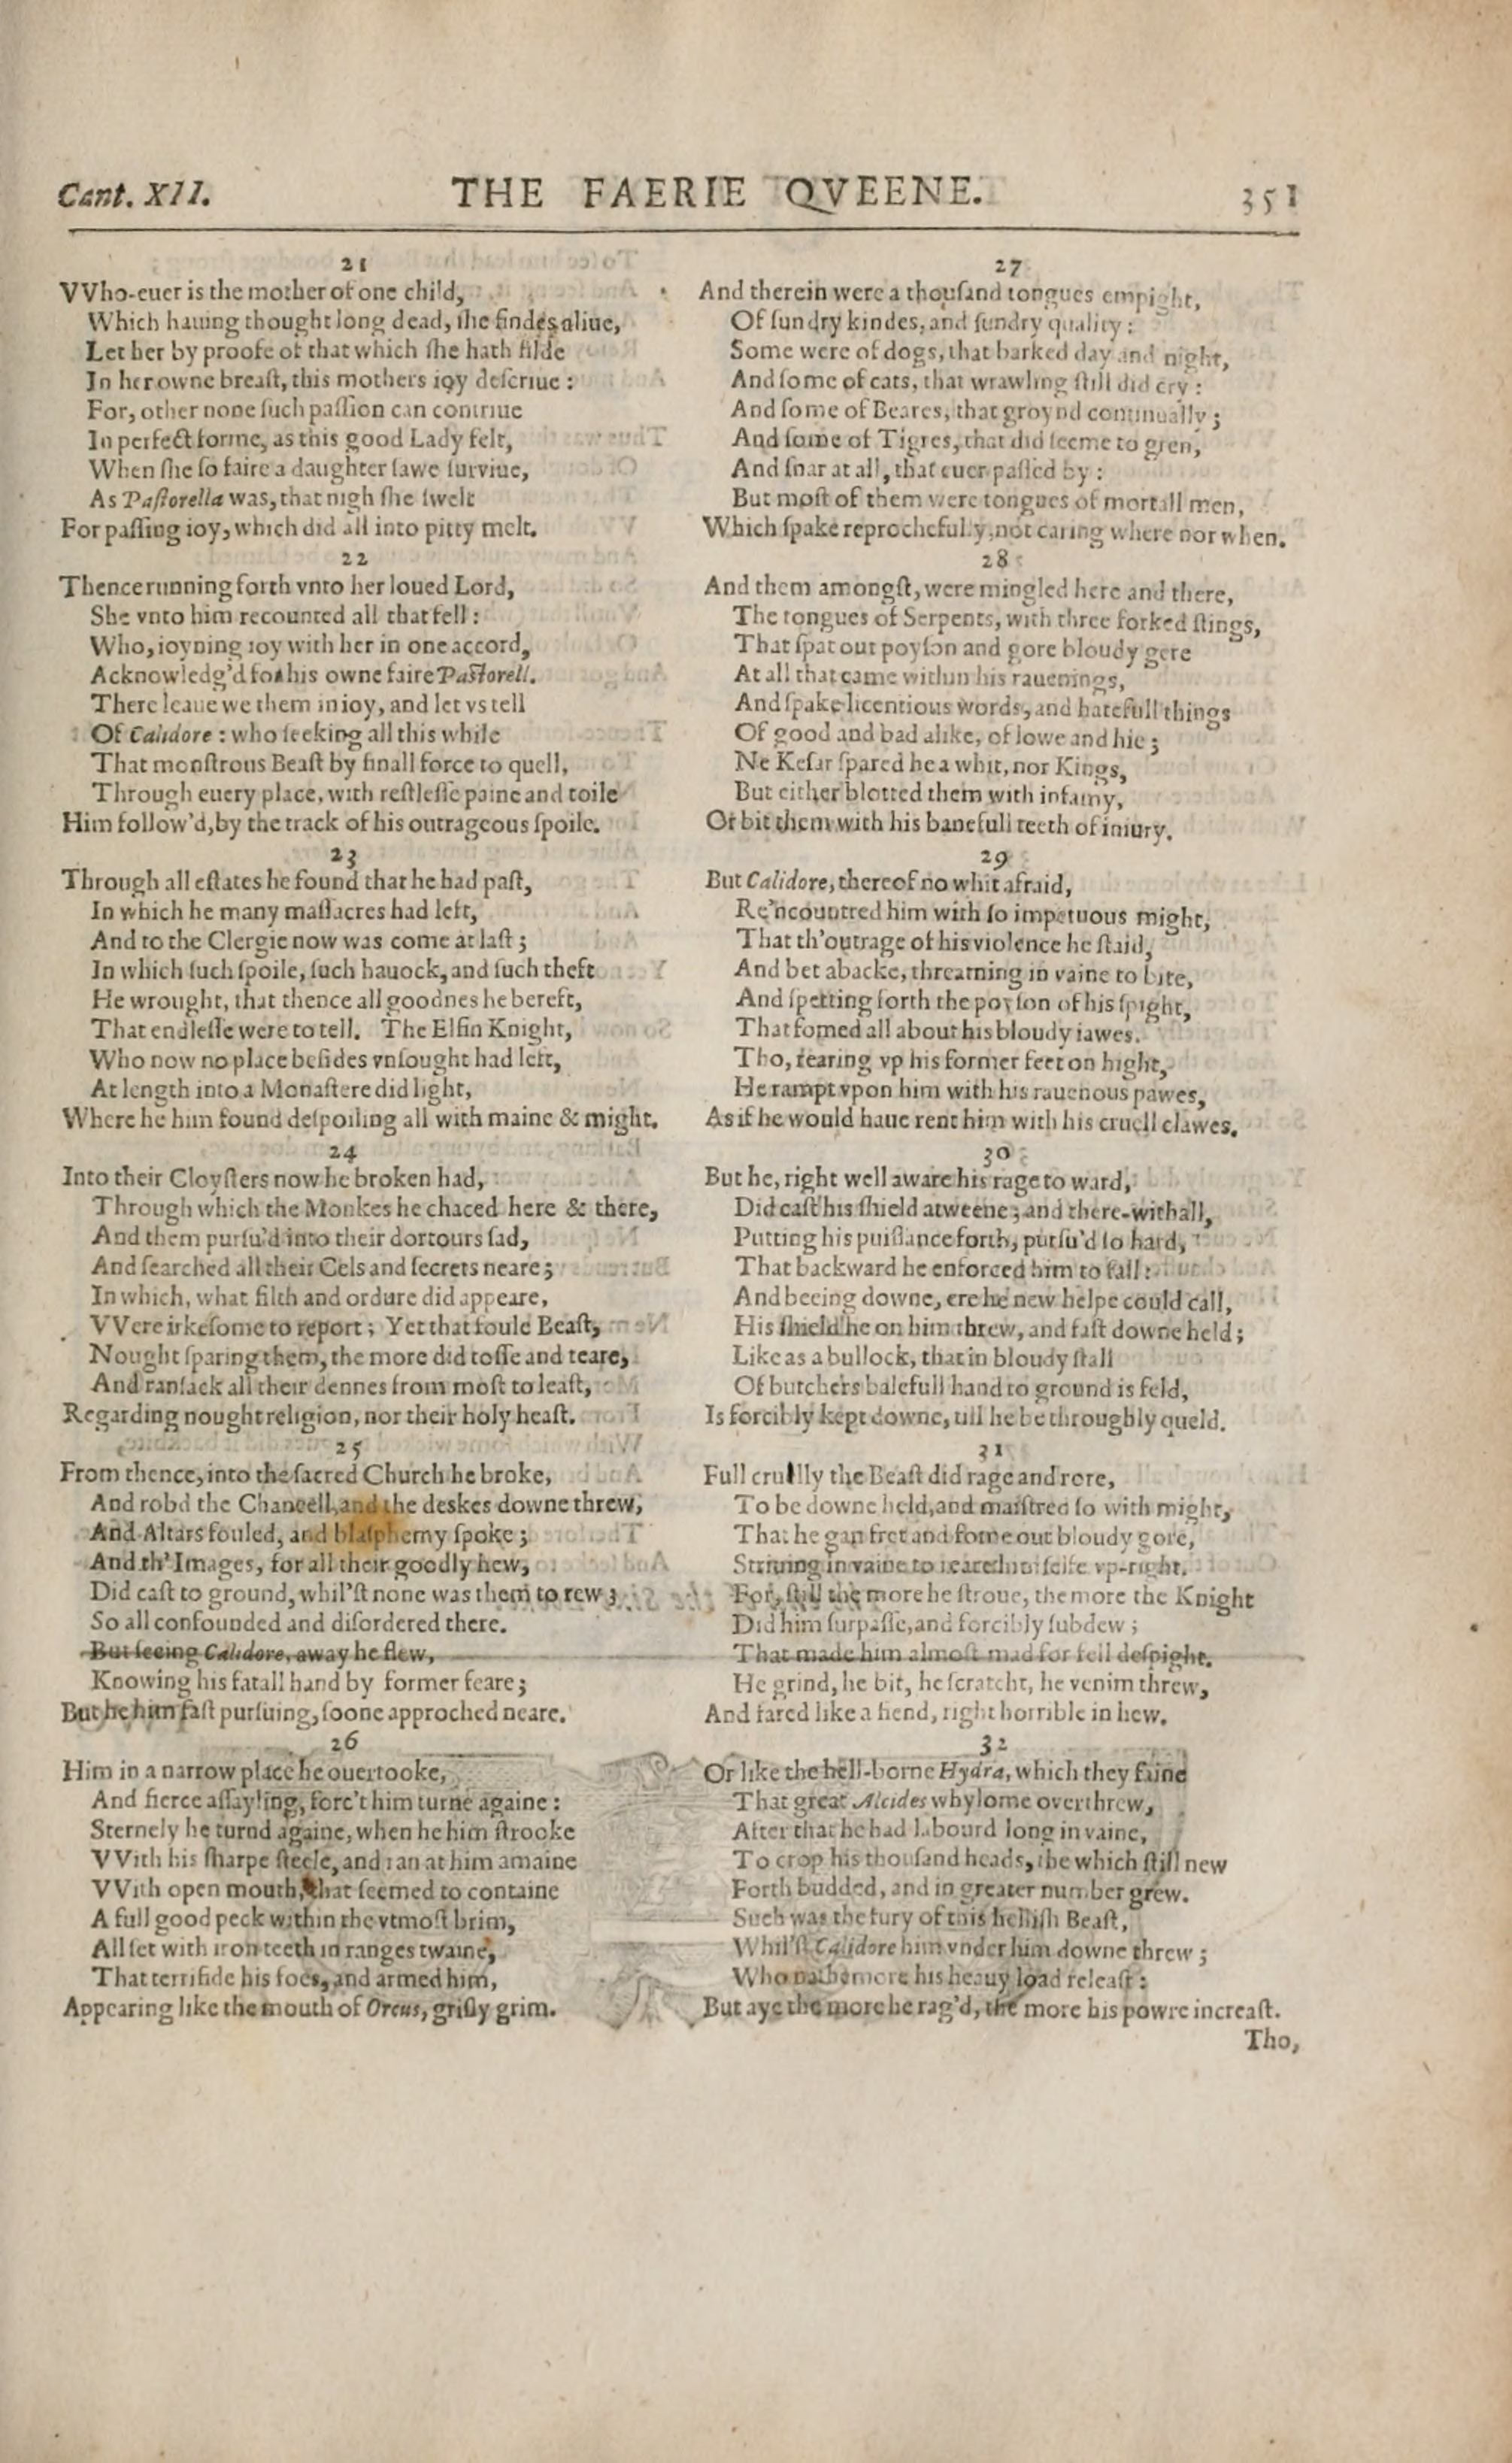 Cant. XII.
THE FAERIE QVEENE.
351
21
VVho-euer is the mother of one child,
Which hauing thought long dead, ſhe findes aliue,
Let her by proofe of that which ſhe hath filde
In her owne breaſt, this mothers ioy deſcriue:
For, other none ſuch paſſion can contriue
In perfect forme, as this good Lady felt,
When ſhe ſo faire a daughter ſawe ſuruiue,
As Paſtorella was, that nigh ſhe ſwelt
For paſſing ioy, which did all into pitty melt.
22
Thence running forth vnto her loued Lord,
She vnto him recounted all that fell:
Who, ioyning ioy with her in one accord,
Acknowledg'd for his owne faire Paſtorell.
There leaue we them in ioy, and let vs tell
Of Calidore: who ſeeking all this while
That monſtrous Beaſt by finall force to quell,
Through euery place, with reſtleſſe paine and toile
Him follow'd, by the track of his outrageous ſpoile.
23
Through all eſtates he found that he had paſt,
In which he many maſſacres had left,
And to the Clergie now was come at laſt;
In which ſuch ſpoile, ſuch hauock, and ſuch theft
He wrought, that thence all goodnes he bereft,
That endleſſe were to tell. The Elfin Knight,
Who now no place beſides vnſought had left,
At length into a Monaſtere did light,
Where he him found deſpoiling all with maine & might.
24
Into their Cloyſters now he broken had,
Through which the Monkes he chaced here & there,
And them purſu'd into their dortours ſad,
And ſearched all their Cels and ſecrets neare;
In which, what filth and ordure did appeare,
VVere irkeſome to report; Yet that foule Beaſt,
Nought ſparing them, the more did toſſe and teare,
And ranſack all their dennes from moſt to leaſt,
Regarding nought religion, nor their holy heaſt.
25
From thence, into the ſacred Church he broke,
And robd the Chancell, and the deskes downe threw,
And Altars fouled, and blaſphemy ſpoke;
And th' Images, for all their goodly hew,
Did caſt to ground, whil'ſt none was them to rew;
So all confounded and diſordered there.
But ſeeing Calidore, away he flew,
Knowing his fatall hand by former feare;
But he him faſt purſuing, ſoone approched neare.
26
Him in a narrow place he ouertooke,
And fierce aſſayling, forc't him turne againe:
Sternely he turnd againe, when he him ſtrooke
VVith his ſharpe ſteele, and ran at him amaine
VVith open mouth, that ſeemed to containe
A full good peck within the vtmoſt brim,
All ſet with iron teeth in ranges twaine,
That terrifide his foes, and armed him,
Appearing like the mouth of Orcus, griſly grim.
27
And therein were a thouſand tongues empight,
Of ſundry kindes, and ſundry quality:
Some were of dogs, that barked day and night,
And ſome of cats, that wrawling ſtill did cry:
And ſome of Beares, that groynd continually;
And ſome of Tigres, that did ſeeme to gren,
And ſnar at all, that euer paſſed by:
But moſt of them were tongues of mortall men,
Which ſpake reprochefully, not caring where nor when.
28
And them amongſt, were mingled here and there,
The tongues of Serpents, with three forked ſtings,
That ſpat out poyſon and gore bloudy gere
At all that came within his rauenings,
And ſpake licentious words, and hatefull things
Of good and bad alike, of lowe and hie;
Ne Keſar ſpared he a whit, nor Kings,
But either blotted them with infamy,
Or bit them with his banefull teeth of iniury.
29
But Calidore, thereof no whit afraid,
Re'ncountred him with ſo impetuous might,
That th'outrage of his violence he ſtaid,
And bet abacke, threatning in vaine to bite,
And ſpetting forth the poyſon of his ſpight,
That fomed all about his bloudy iawes.
Tho, rearing vp his former feet on hight,
He rampt vpon him with his rauenous pawes,
As if he would haue rent him with his cruell clawes.
30
But he, right well aware his rage to ward,
Did caſt his ſhield atweene; and there-withall,
Putting his puiſſance forth, purſu'd ſo hard,
That backward he enforced him to fall:
And beeing downe, ere he new helpe could call,
His ſhield he on him threw, and faſt downe held;
Like as a bullock, that in bloudy ſtall
Of butchers balefull hand to ground is feld,
Is forcibly kept downe, till he be throughly queld.
31
Full cruelly the Beaſt did rage and rore,
To be downe held, and maiſtred ſo with might,
That he gan fret and fome out bloudy gore,
Striuing in vaine to reare himſelfe vp-right.
For, ſtill the more he ſtroue, the more the Knight
Did him ſurpaſſe, and forcibly ſubdew;
That made him almoſt mad for fell deſpight.
He grind, he bit, he ſcratcht, he venim threw,
And fared like a fiend, right horrible in hew.
32
Or like the hell-borne Hydra, which they faine
That great Alcides whylome overthrew,
After that he had labourd long in vaine,
To crop his thouſand heads, the which ſtill new
Forth budded, and in greater number grew.
Such was the fury of this helliſh Beaſt,
Whil'ſt Calidore him vnder him downe threw;
Who nathemore his heauy load releaſt:
But aye the more he rag'd, the more his powre increaſt.
Tho,